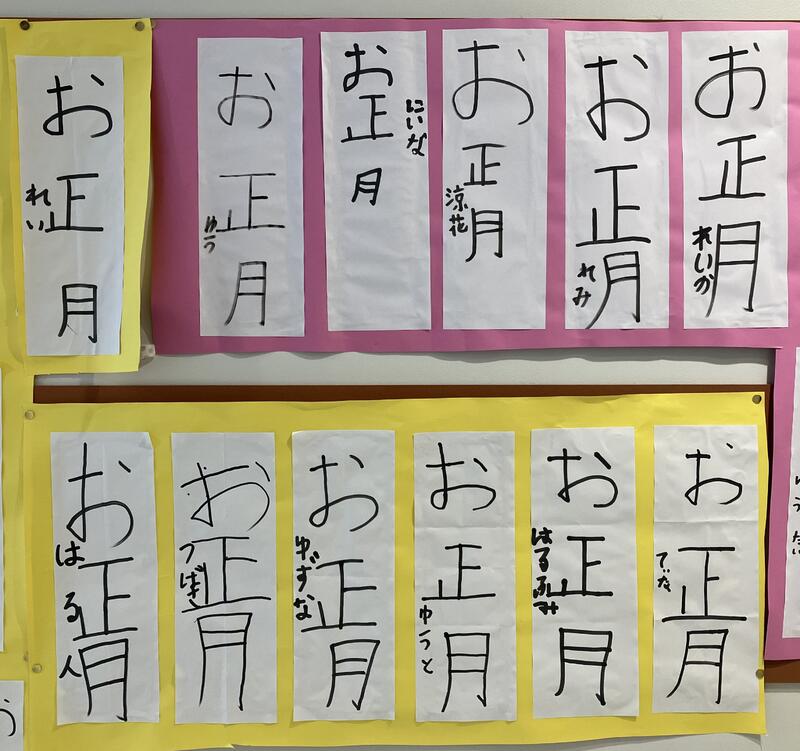 お正月
れい
お正月
ゆう
お正月
にいな
お正月
涼花
お正月
れみ
お正月
れいか
お正月
はる人
お正月
つばき
お正月
ゆずな
お正月
ゆうと
お正月
はるふみ
お正月
う